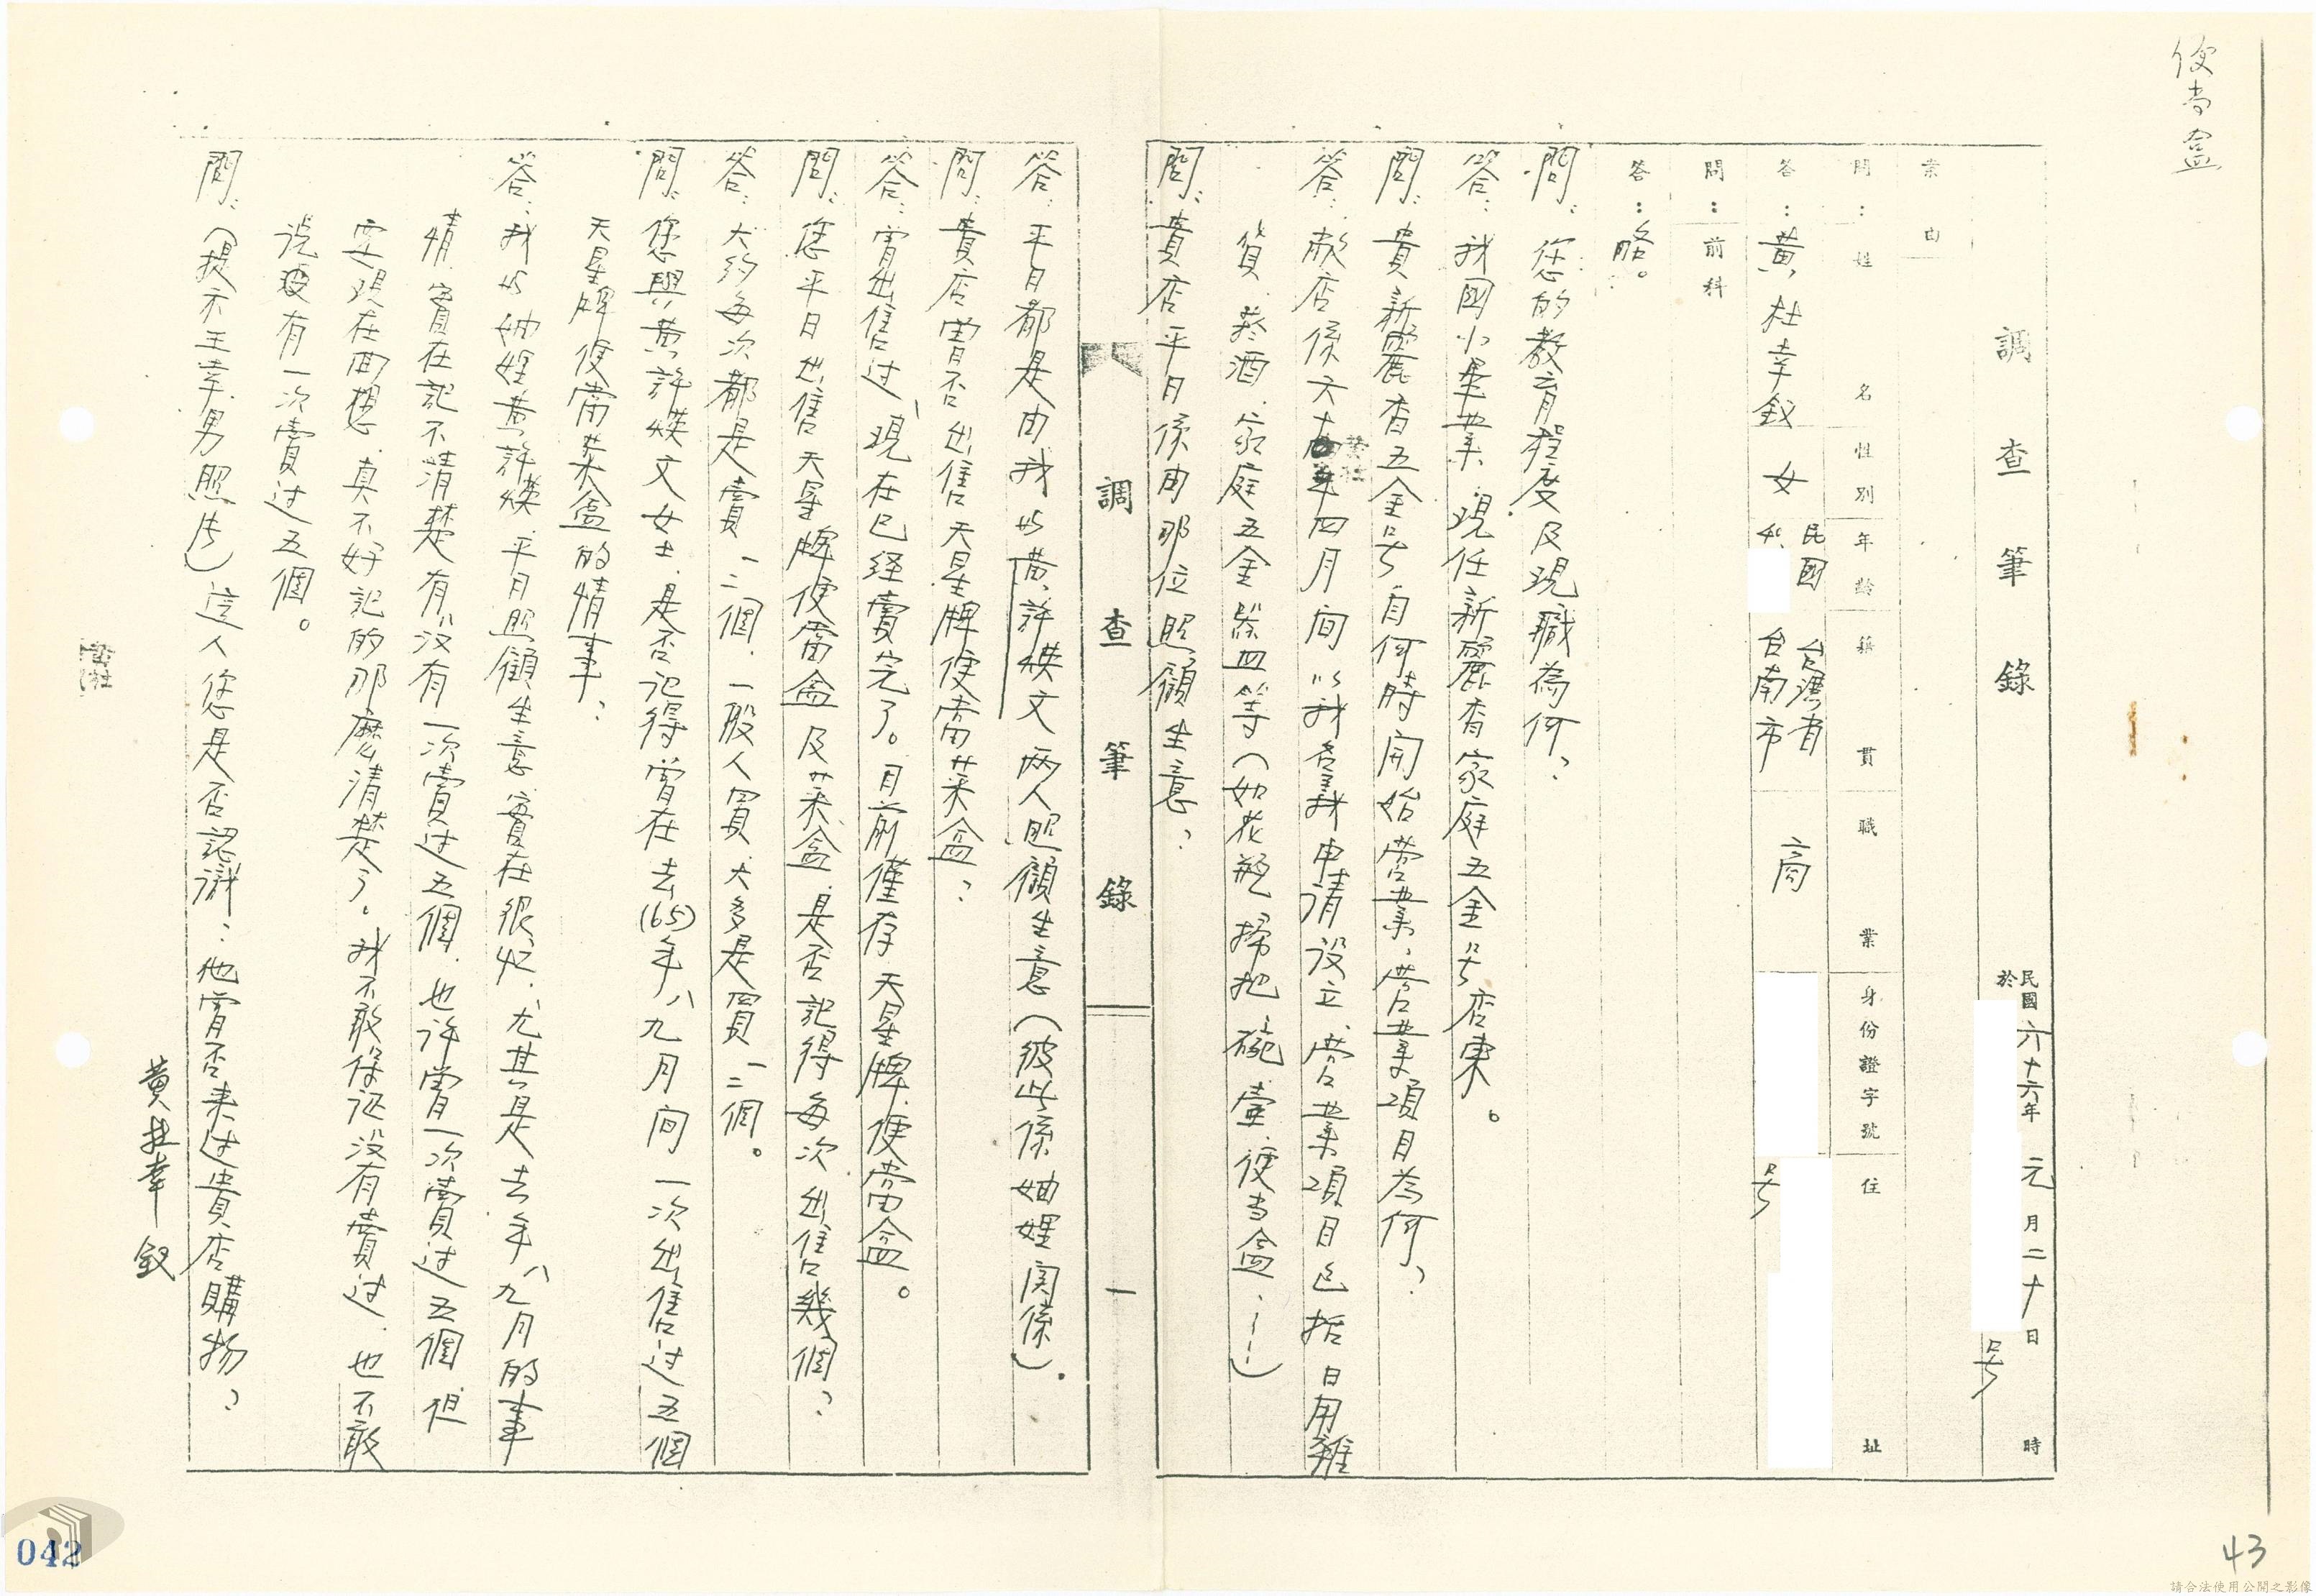 便当盒
調查筆錄
民國六十六年元月二十日 時
於 号
案由
問：姓名 性別 年齡 籍貫 職業 身份證字號 住址
答：黃杜幸釵 女 民國 台灣省台南市 商 号
問：前科
答：略。
問：您的教育程度及現職為何？
答：我國小畢業，現任新麗香家庭五金号店東。
問：貴新麗香五金号自何時開始營業，營業項目為何？
答：敝店係六十年四月間以我名義申请设立，營業項目包括日用雜
貨、菸酒、家庭五金器皿等（如花瓶、掃把、碗、壷、便当盒、……）
問：貴店平日係由那位照顧生意？
調查筆錄 一
答：平日都是由我与黃許煐文兩人照顧生意（彼此係妯娌関係）.
問：貴店曾否出售天星牌便當菜盒？
答：曾出售过，現在已經賣完了。目前僅存天星牌便當盒。
問：您平日出售天星牌便當盒及菜盒，是否記得每次出售幾個？
答：大約每次都是賣一、二個，一般人買大多是買一、二個。
問：您與黃許煐文女士，是否记得曾在去(65)年八、九月间一次出售过五個
天星牌便當菜盒的情事？
答：我与妯娌黃許煐平日照顧生意實在很忙，尤其是去年八、九月的事
情，實在記不清楚有没有一次賣过五個，也許曾一次賣过五個，但
要現在回想，真不好記的那麽清楚了。我不敢保证没有賣过，也不敢
说硬有一次賣过五個。
問：（提示王幸男照片）這人您是否認識？他曾否来过貴店購物？
黃杜幸釵
042
43
請合法使用公開之影像